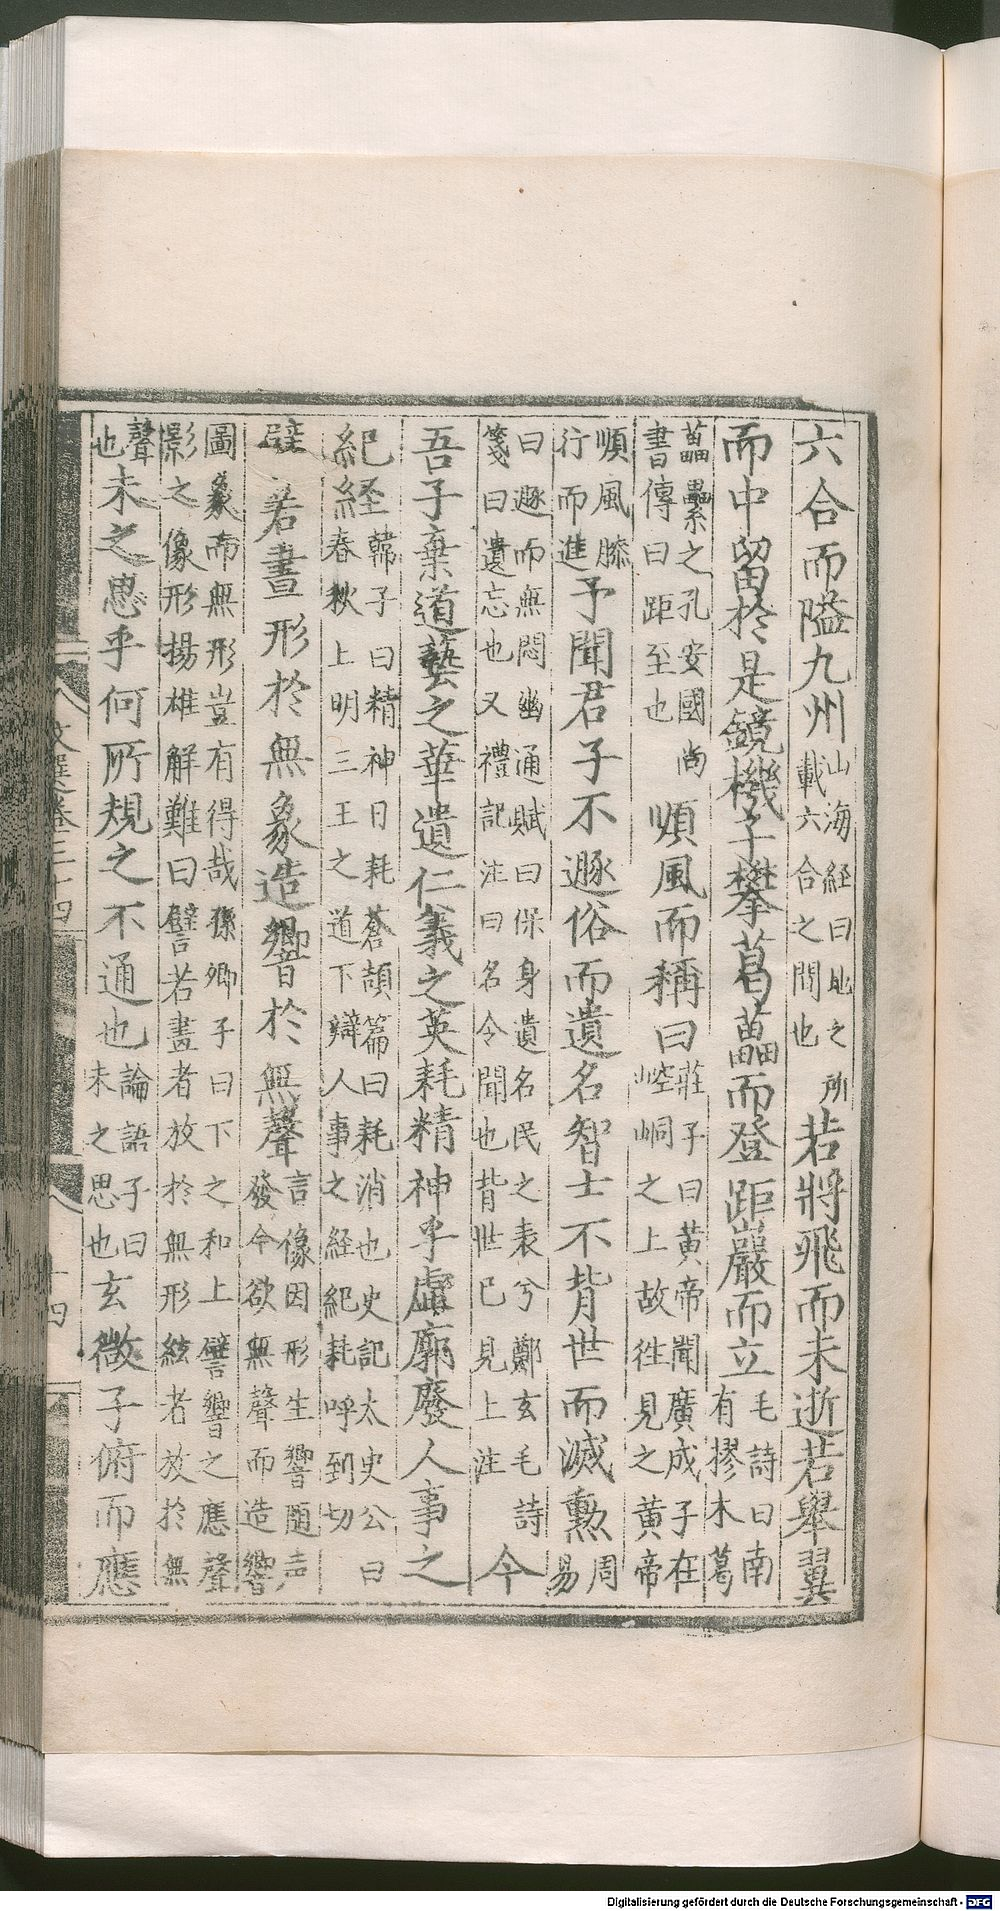 六合而隘九州山海経曰地之所載六合之間也若將飛而未逝若舉翼
而中留扵是鏡機子攀葛藟而登距巖而立毛詩曰南有摎木葛
藟纍之孔安國尚書傳曰距至也順風而稱曰莊子曰黃帝聞廣成子在崆峒之上故徃見之黃帝
順風膝行而進予聞君子不遯俗而遺名智士不背世而滅勲周易
曰遯而無悶幽通賦曰保身遺名民之表兮鄭玄毛詩箋曰遺忘也又禮記注曰名令聞也背世巳見上注今
吾子棄道藝之華遺仁義之英耗精神乎虛廓廢人事之
紀経韓子曰精神日耗蒼頡篇曰耗消也史記太史公曰春秋上明三王之道下辯人事之経紀耗呼到切
譬若畫形扵無象造響扵無聲言像因形生響随声發令欲無聲而造響
圖象而無形豈有得哉孫卿子曰下之和上譬響之應聲影之像形揚雄解難曰譬若畫者放扵無形絃者放扵無
聲也未之思乎何所規之不通也論語子曰未之思也玄微子俯而應
文選卷三十四
十四
Digitalisierung gefördert durch die Deutsche Forschungsgemeinschaft - DFG